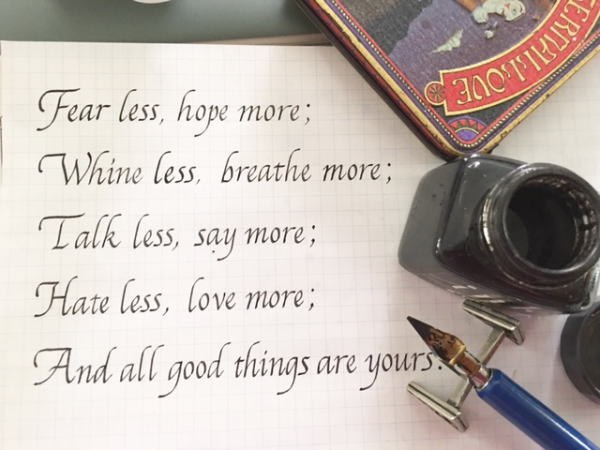 Fear less, hope more;
Whine less, breathe more;
Talk less, say more;
Hate less, love more;
And all good things are yours.